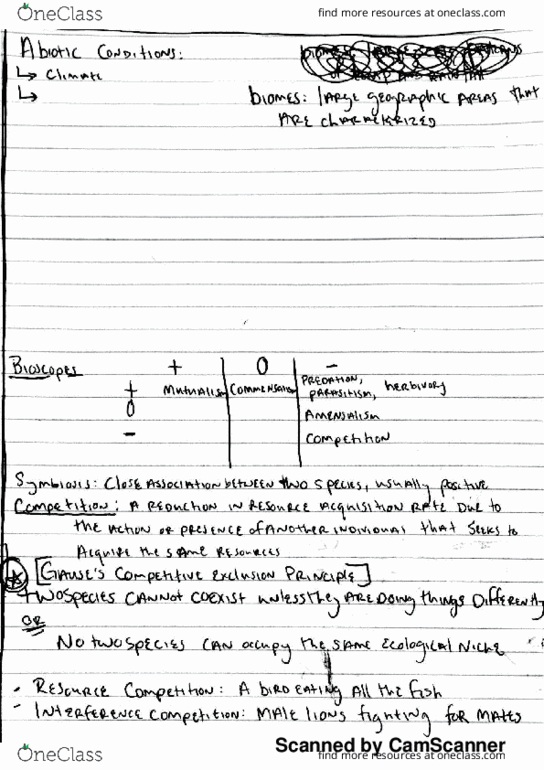 OneClass
find more resources at oneclass.com
Abiotic Conditions:
↳ Climate
↳
biomes: large geographic areas that
are characterized
Bioscopes + 0 -
+ Mutualism Commensalism Predation, parasitism, herbivory
0 Amensalism
- Competition
Symbiosis: Close association between two species, usually positive
Competition: A reduction in resource acquisition rate due to
the action or presence of another individual that seeks to
acquire the same resources
[Gause's Competitive Exclusion Principle]
Two species cannot coexist unless they are doing things differently
OR
No two species can occupy the same ecological niche
- Resource Competition: A bird eating all the fish
- Interference Competition: Male lions fighting for mates
Scanned by CamScanner
OneClass
find more resources at oneclass.com